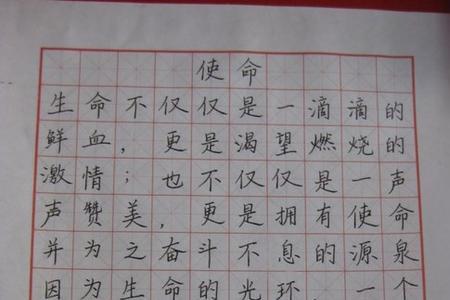 使命
生命不仅仅是一滴滴的
鲜血，更是渴望燃烧的
激情；也不仅仅是一声
声赞美，更是拥有使命
并为之奋斗不息的源泉
因为生命的光环，一个